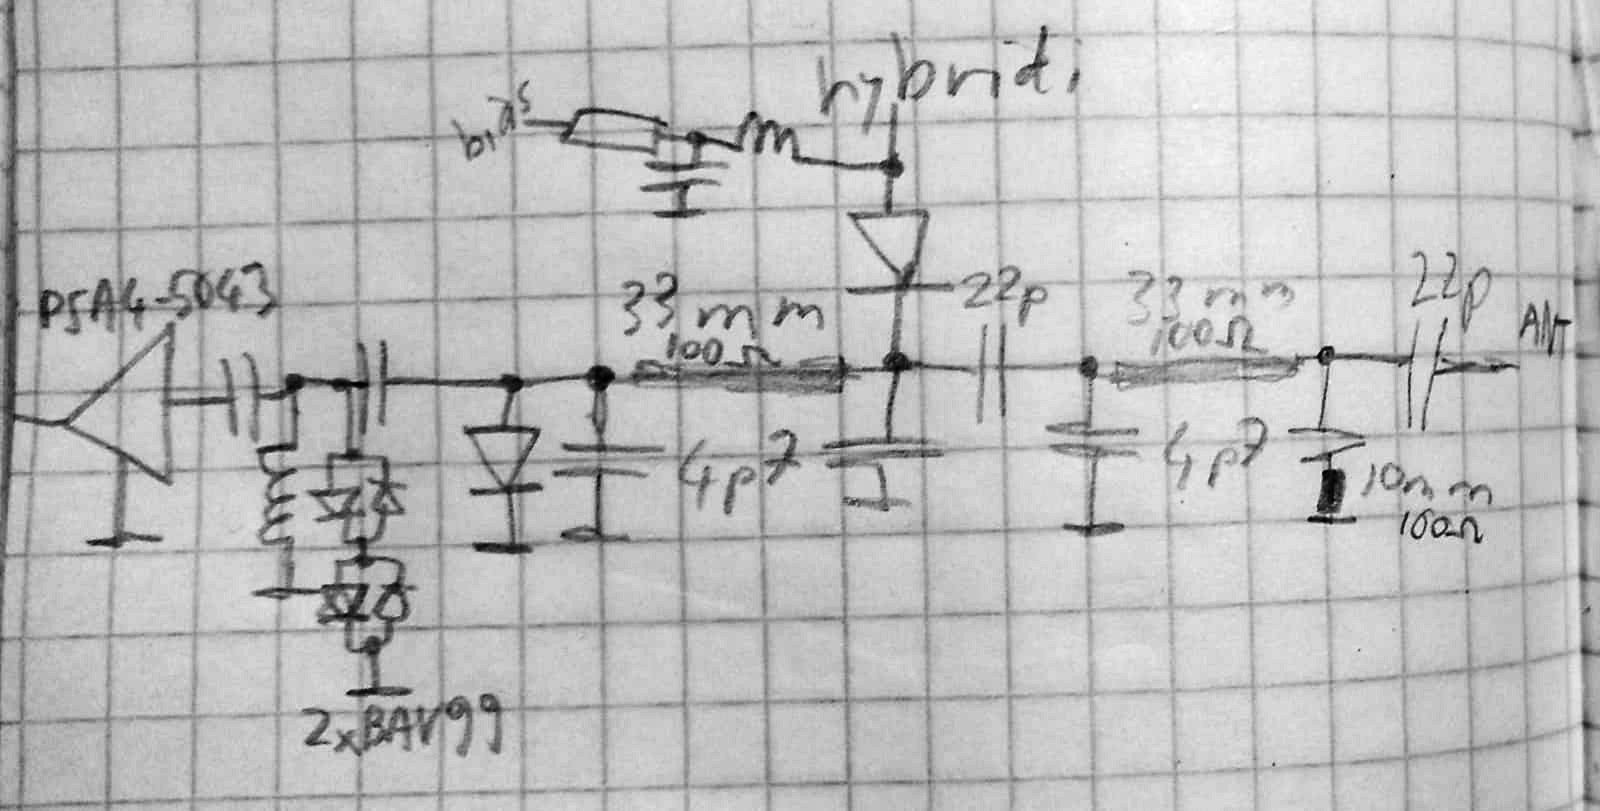 hybridi
bias
PSA4-5043
33mm
100Ω
22p
33mm
100Ω
22p
ANT
4p7
4p7
10mm
100Ω
2xBAV99